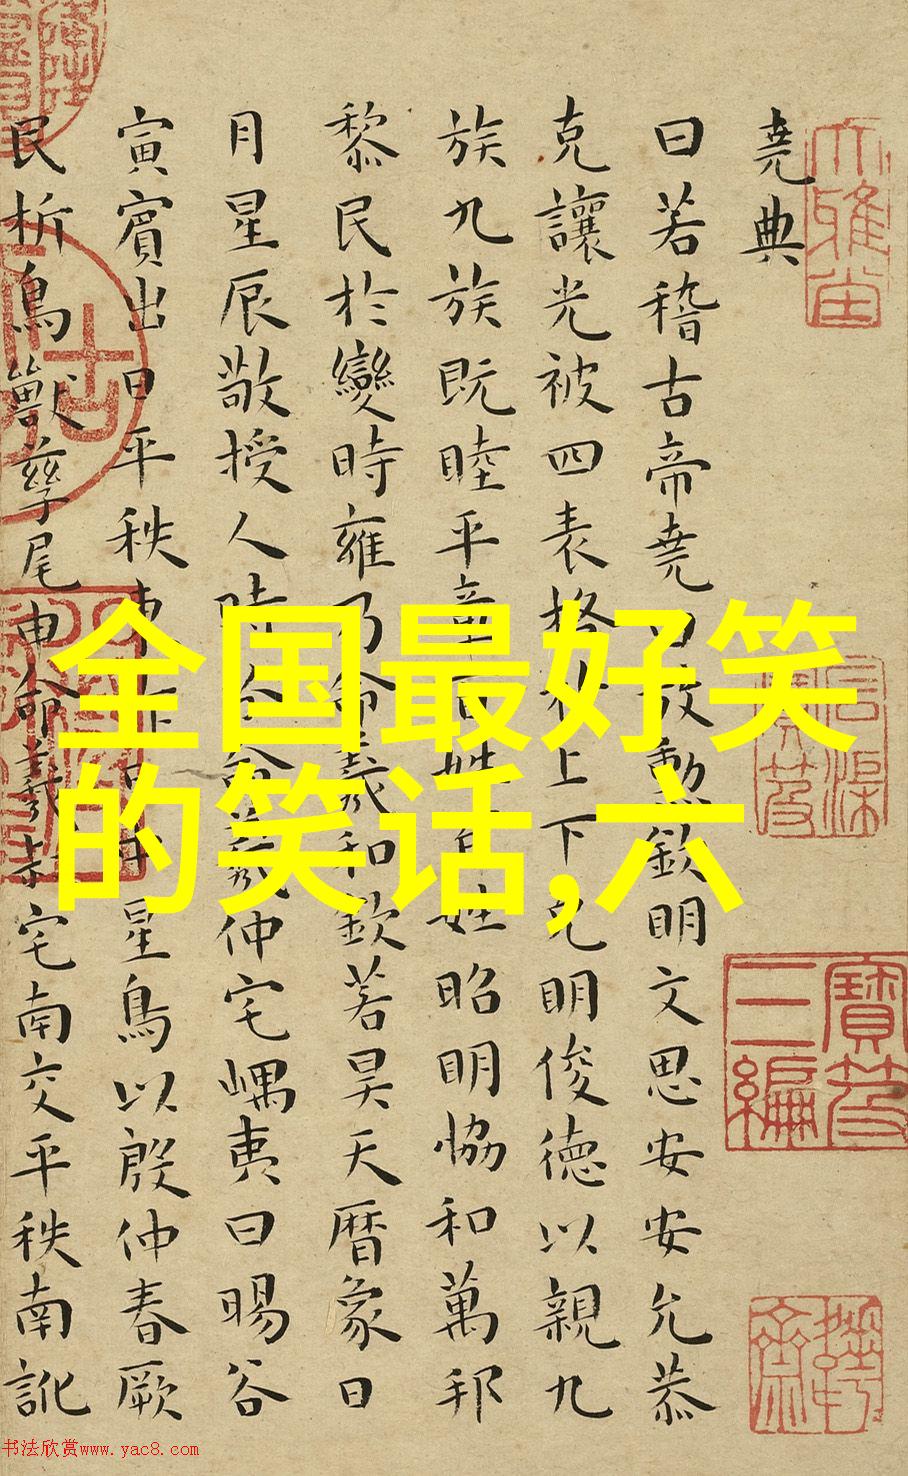 堯典
曰若稽古帝堯曰放勳欽明文思安安允恭
克讓光被四表格于上下克明俊德以親九
族九族既睦平章百姓百姓昭明協和萬邦
黎民於變時雍乃命羲和欽若昊天曆象日
月星辰敬授人時分命羲仲宅嵎夷曰暘谷
寅賓出日平秩東作日中星鳥以殷仲春厥
民析鳥獸孳尾申命羲叔宅南交平秩南訛
全国最好笑
的笑话,六
寶笈
三編
书法欣赏www.yac8.com